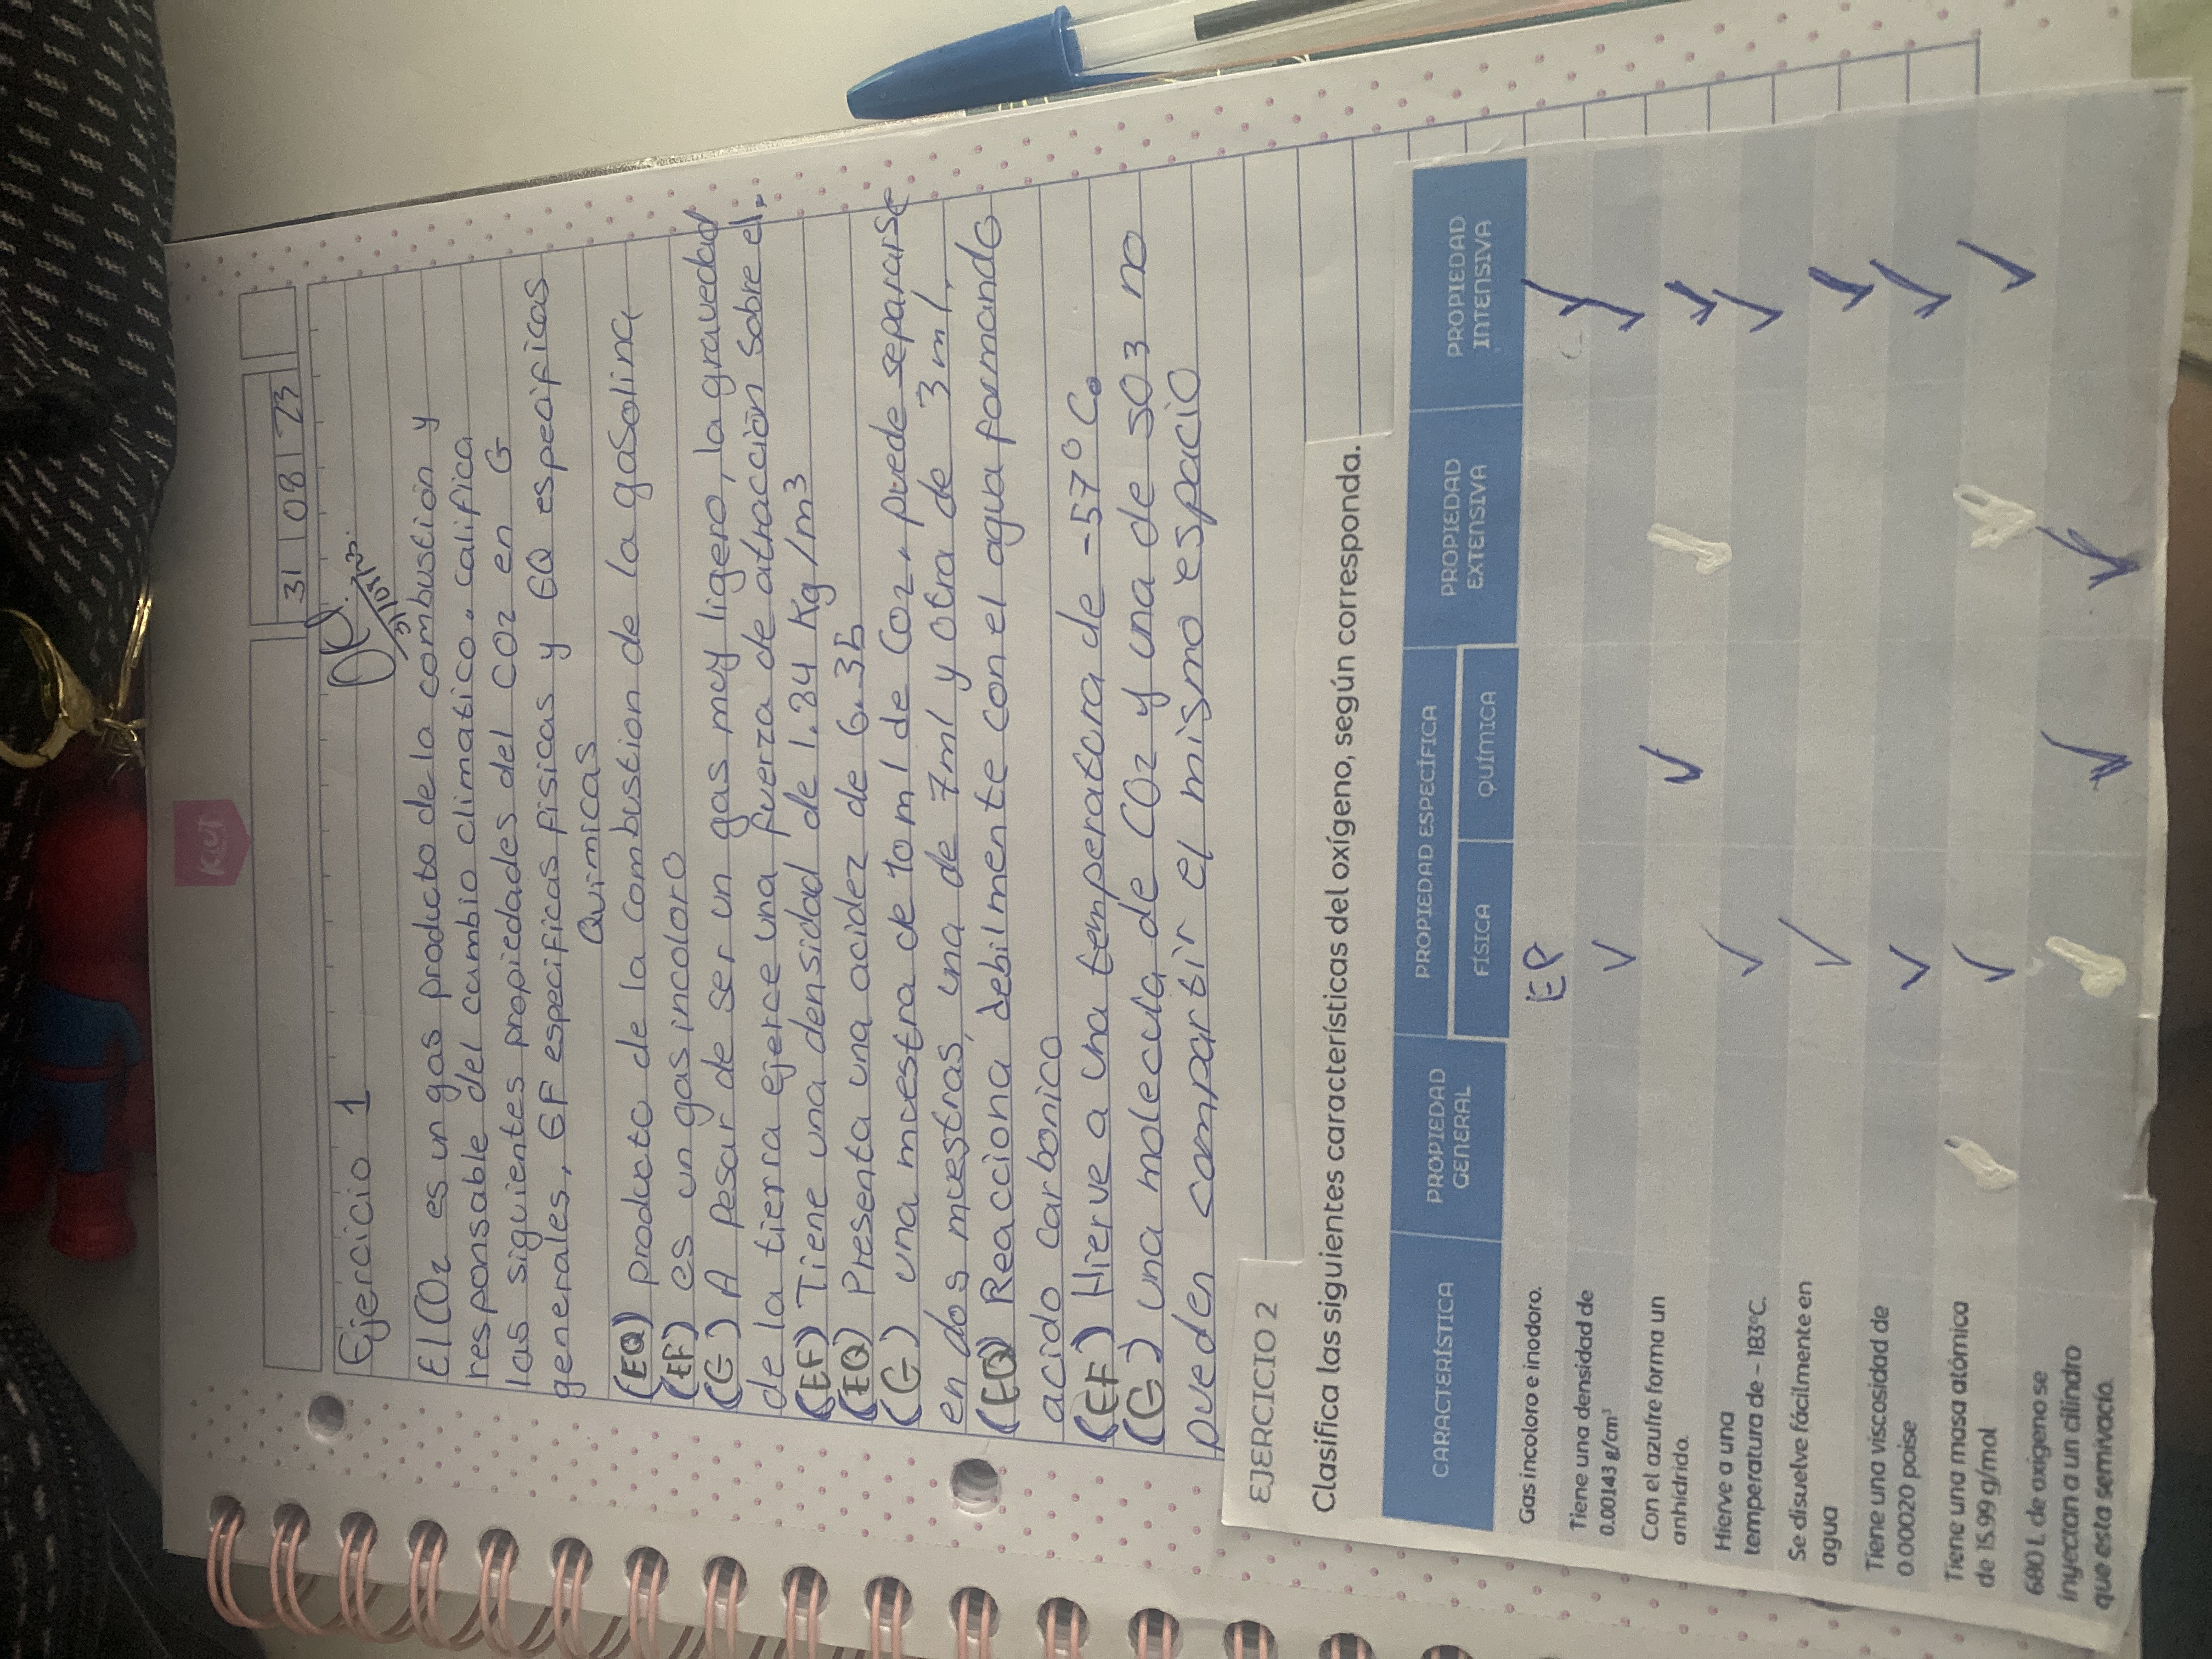 Kiut
31 08 23
Ejercicio 1
El CO2 es un gas producto de la combustion y
responsable del cambio climatico. califica
las siguientes propiedades del CO2 en G
generales, EF especificas fisicas y EQ especificas
Quimicas
(EQ) producto de la combustion de la gasolina
(EF) es un gas incoloro
(G) A pesar de ser un gas muy ligero, la gravedad
de la tierra ejerce una fuerza de atracción sobre el.
(EF) Tiene una densidad de 1.84 Kg/m3
(EQ) Presenta una acidez de 6.36
(G) una muestra de 10 ml de CO2, puede separarse
en dos muestras, una de 7ml y otra de 3ml.
(EQ) Reacciona debilmente con el agua formando
acido carbonico
(EF) Hierve a una temperatura de -57° C.
(G) una molecula de CO2 y una de SO3 no
pueden compartir el mismo espacio
EJERCICIO 2
Clasifica las siguientes características del oxígeno, según corresponda.
CARACTERÍSTICA PROPIEDAD GENERAL PROPIEDAD ESPECÍFICA PROPIEDAD EXTENSIVA PROPIEDAD INTENSIVA
FÍSICA QUÍMICA
Gas incoloro e inodoro. EP ✓
Tiene una densidad de
0.00143 g/cm³ ✓ ✓
Con el azufre forma un
anhídrido. ✓ ✓
Hierve a una
temperatura de – 183°C. ✓ ✓
Se disuelve fácilmente en
agua ✓ ✓
Tiene una viscosidad de
0.00020 poise ✓ ✓
Tiene una masa atómica
de 15.99 g/mol ✓ ✓
680 L de oxígeno se
inyectan a un cilindro
que esta semivacío. ✓ ✓